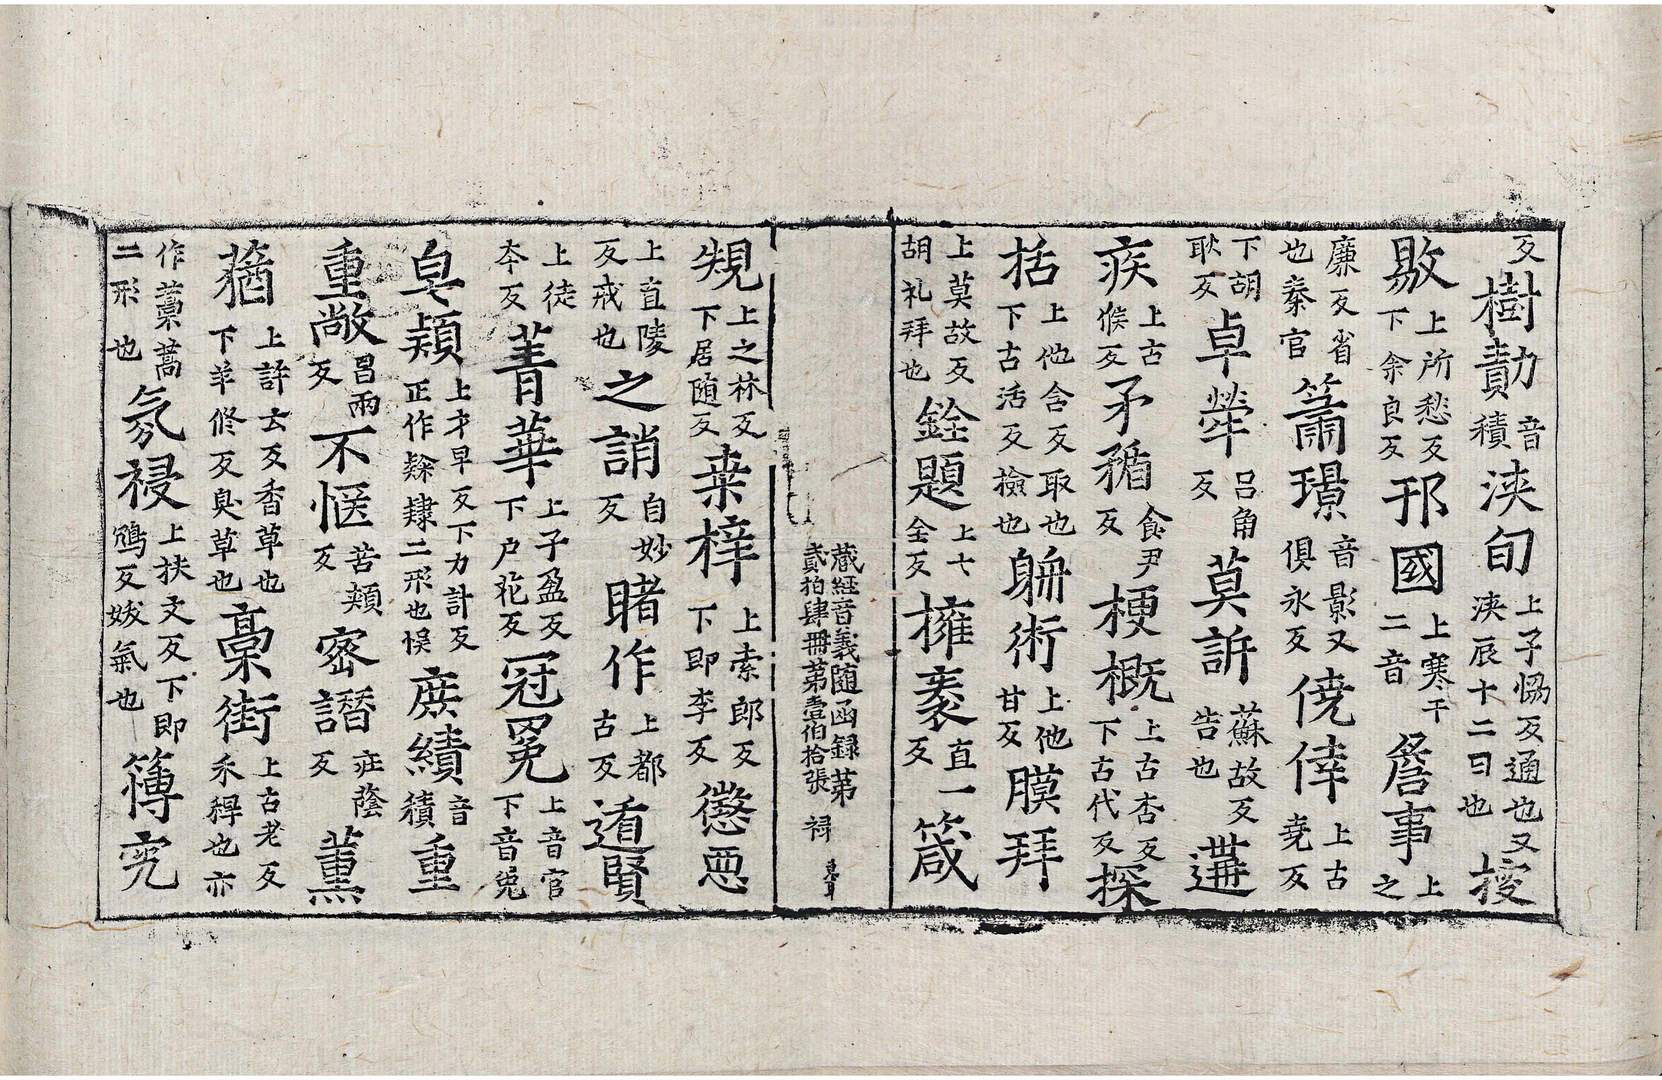 反樹勣音積浹旬上子恊反通也又浹辰十二日也挍
敭上所愁反下余良反邗國上寒干二音詹事上之
廉反省也秦官簫璟音影又俱永反僥倖上古堯反
下胡耿反卓犖呂角反莫訴蘇故反告也遘
疾上古候反矛楯食尹反梗概上古杏反下古代反探
括上他含反取也下古活反撿也躭術上他甘反膜拜
上莫故反胡礼拜也銓題上七全反擁袠直一反箴
藏経音義随函録第
貳拾肆冊第壹伯拾張 禄
䂓上之林反下居随反桒梓上索郎反下即李反懲悪
上直陵反戒也之誚自妙反睹作上都古反遁賢
上徒夲反菁華上子盈反下户花反冠冕上音官下音免
皁䫋上才早反下力計反正作䌫隷二形也悮庻績音積重
重敞昌兩反不愜苦頬反宻譖疘蔭反薫
蕕上許云反香草也下羊修反臭草也稾街上古老反禾稈也亦
作藁蒿二形也氛祲上扶文反下即鴆反妖氣也簿究